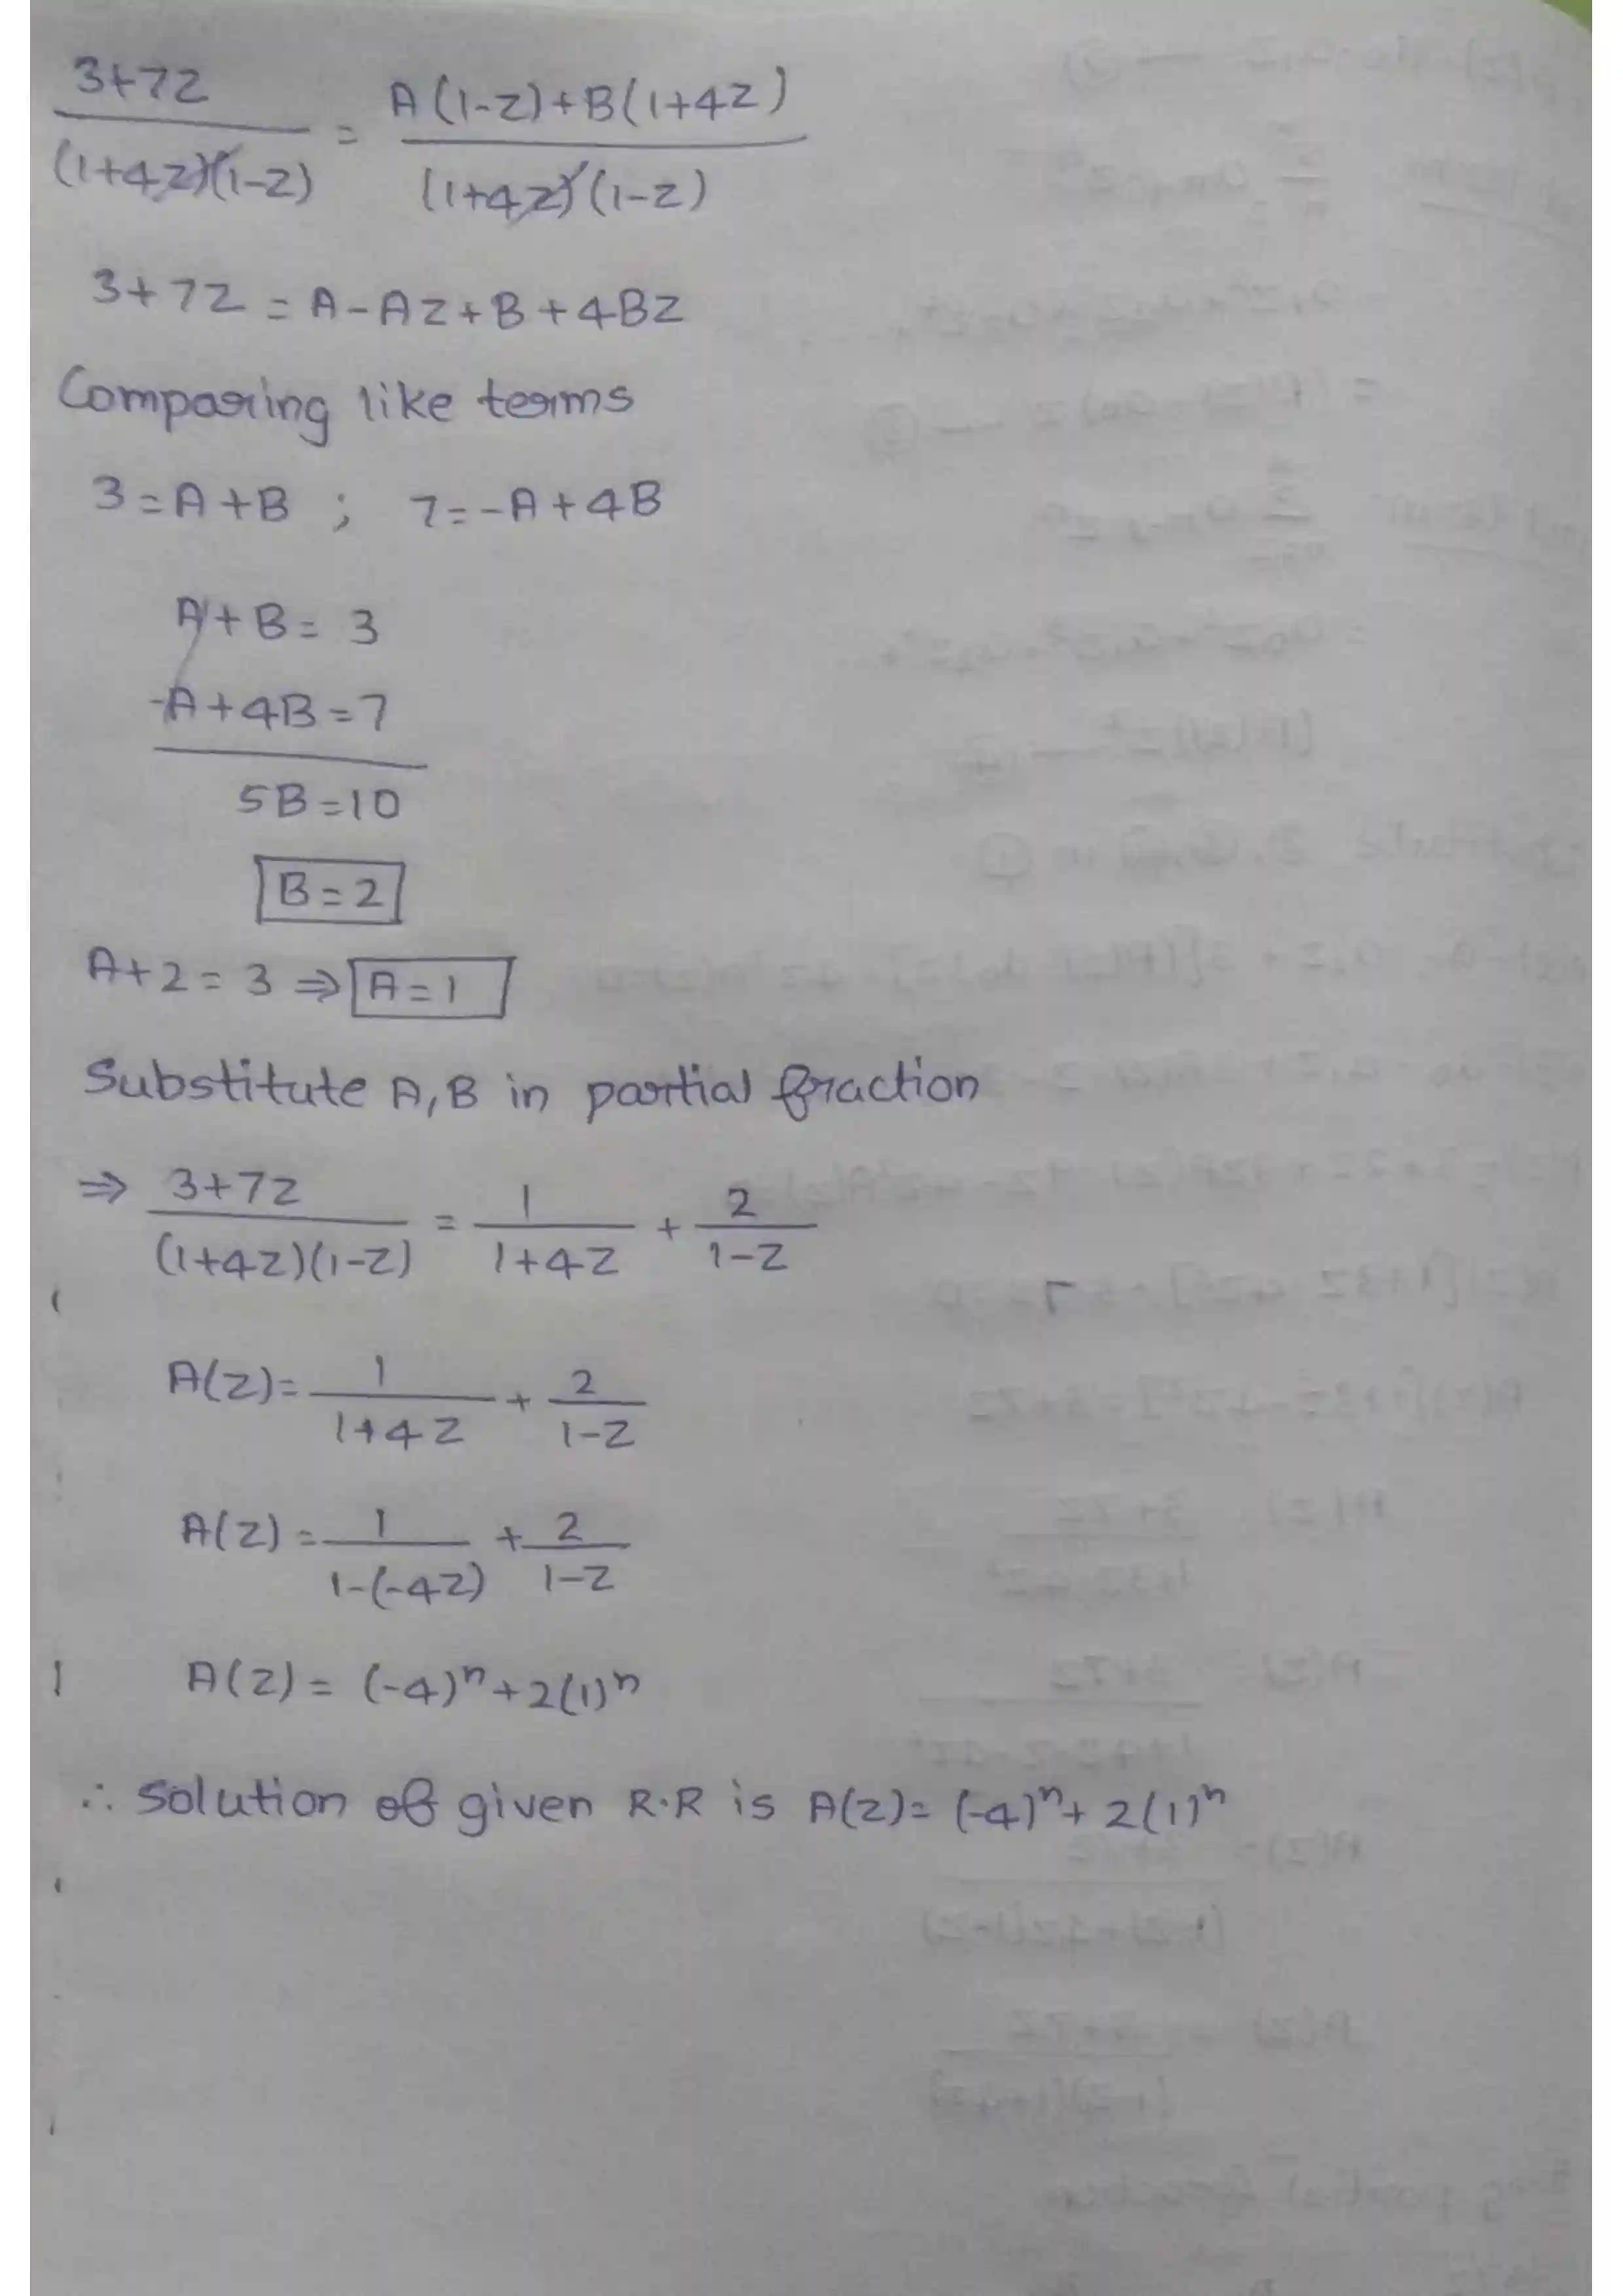 3+7z / (1+4z)(1-z) = A(1-z)+B(1+4z) / (1+4z)(1-z)
3+7z = A-Az+B+4Bz
Comparing like terms
3=A+B ; 7=-A+4B
A+B= 3
-A+4B=7
5B=10
B=2
A+2=3 ⇒ A=1
Substitute A,B in partial fraction
⇒ 3+7z / (1+4z)(1-z) = 1 / 1+4z + 2 / 1-z
A(z)= 1 / 1+4z + 2 / 1-z
A(z)= 1 / 1-(-4z) + 2 / 1-z
A(z)= (-4)ⁿ+2(1)ⁿ
∴ Solution of given R.R is A(z)= (-4)ⁿ+ 2(1)ⁿ